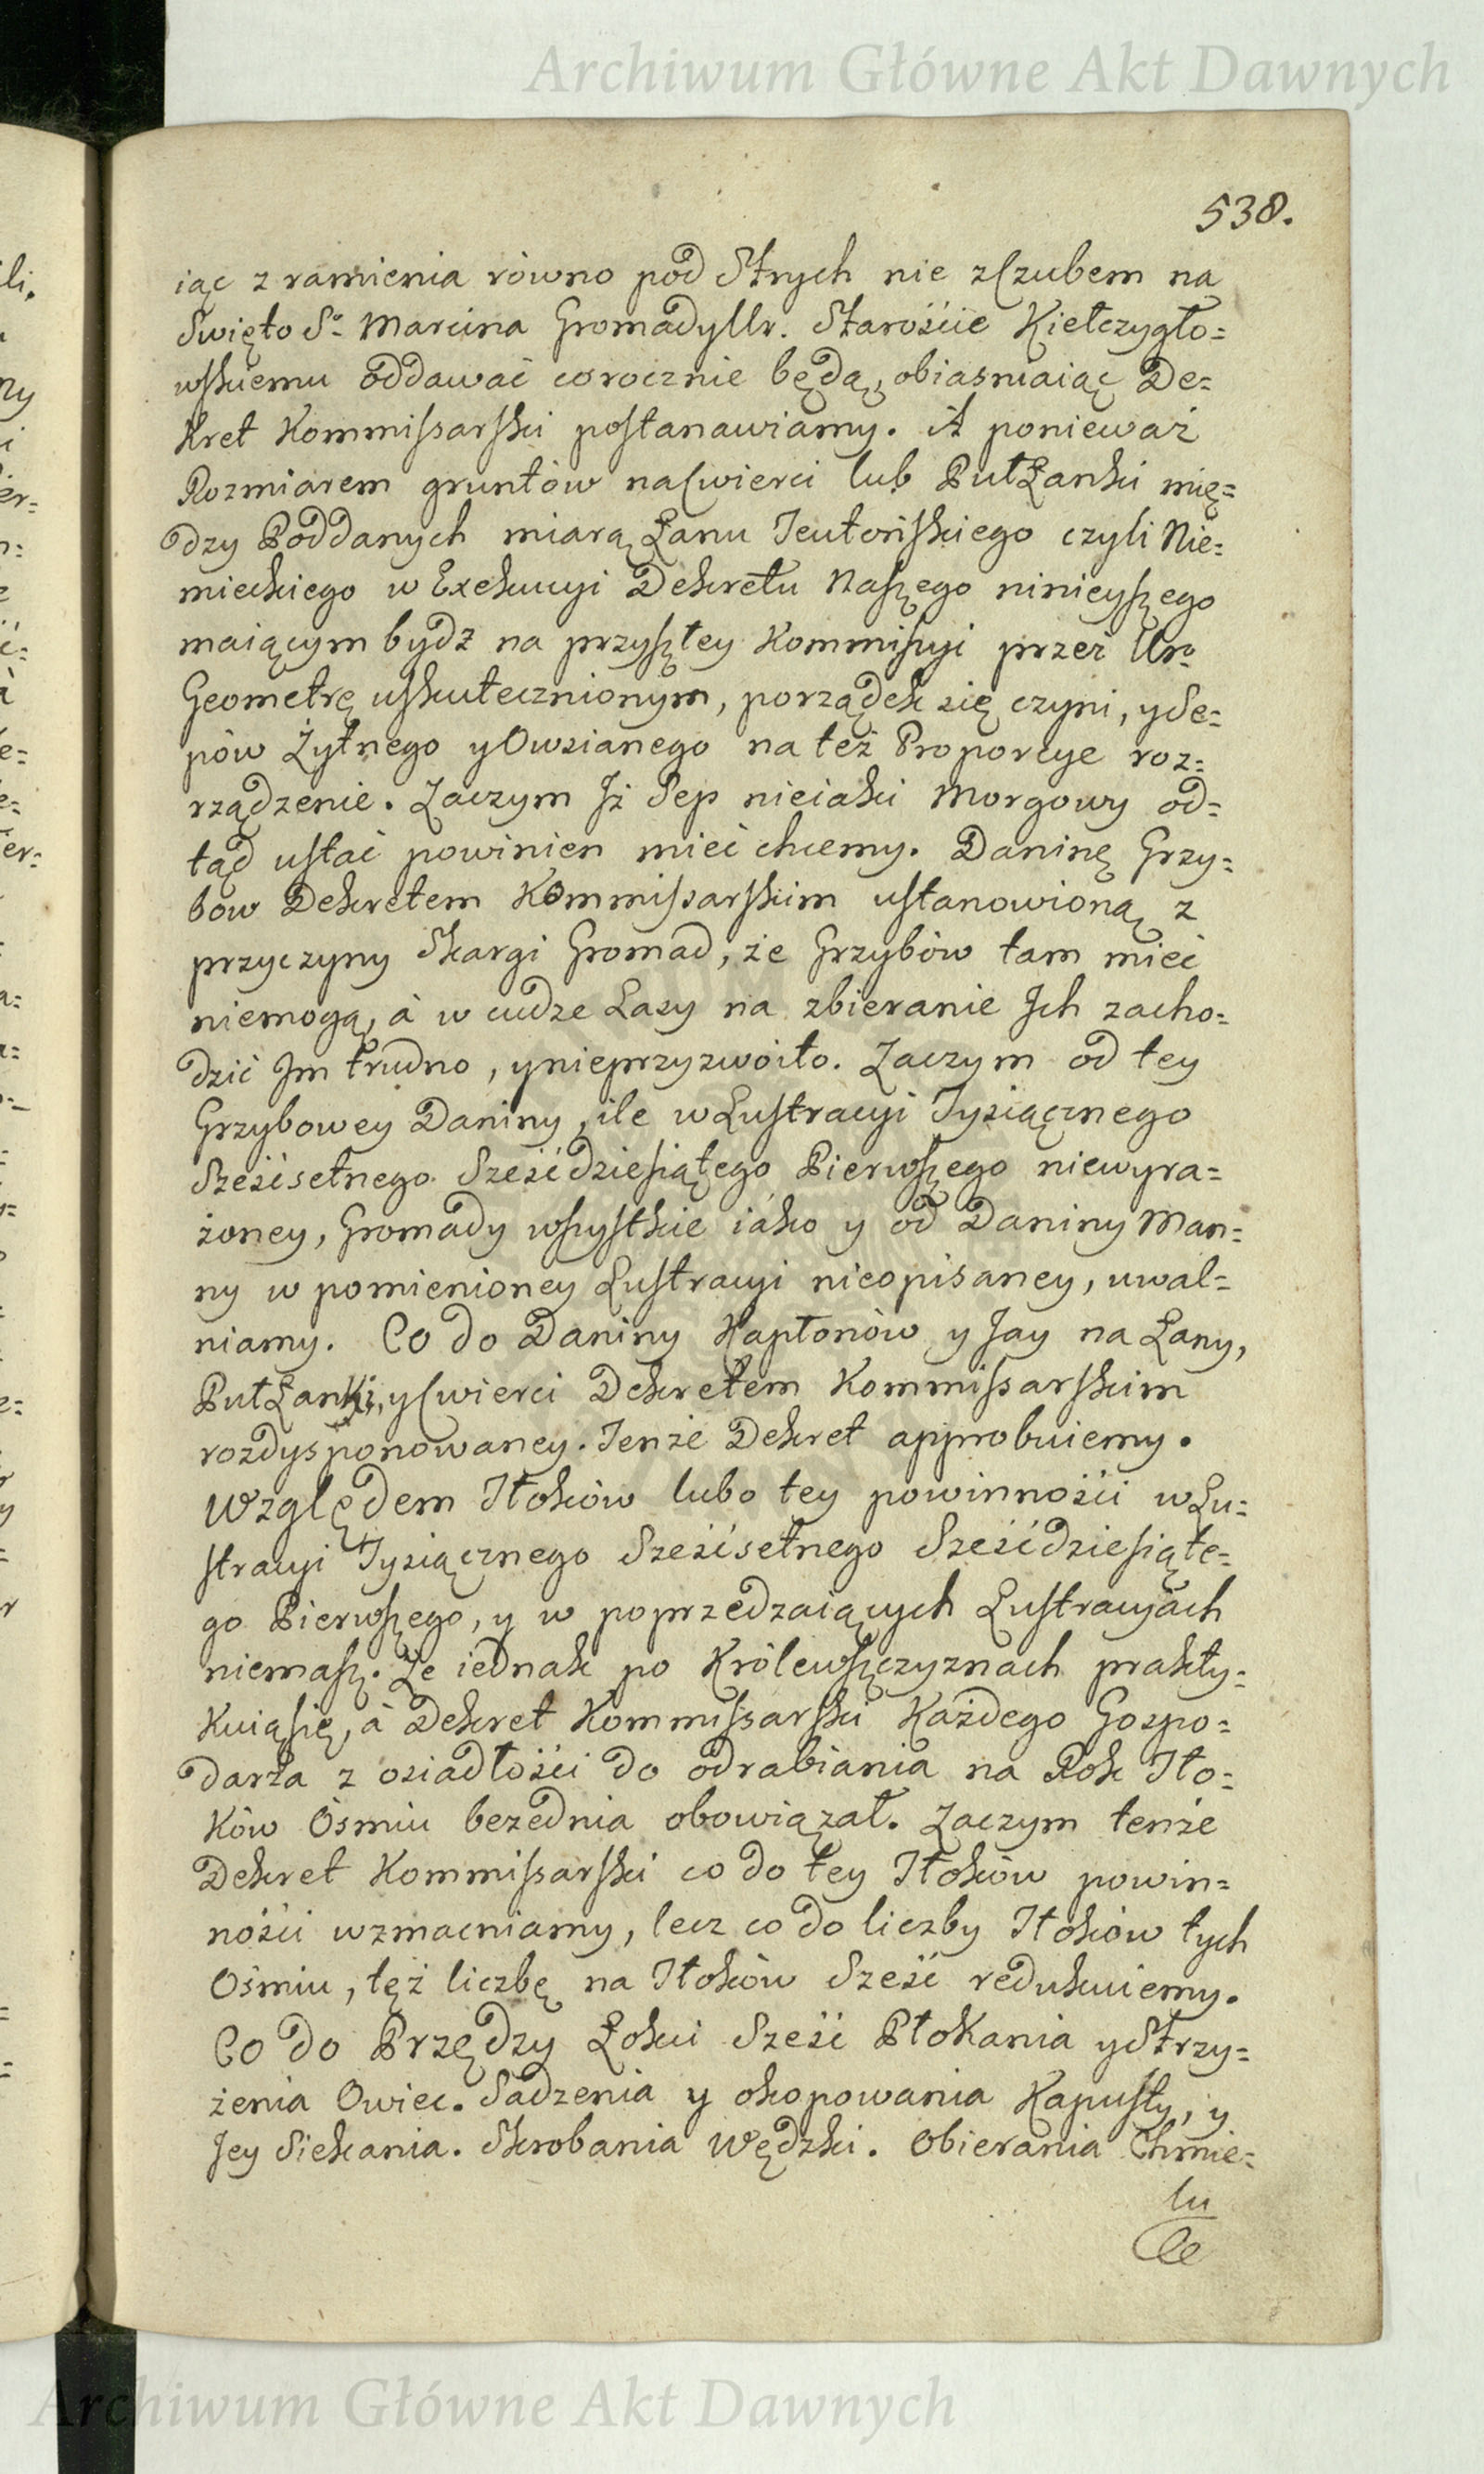 Archiwum Główne Akt Dawnych
538.
iąc z ramienia równo pod Strych nie z Czubem na
Swięto S° Marcina Gromady Ur. Starośćie Kiełczygło=
wskiemu oddawać corocznie będą, obiasniaiąc De=
kret Kommissarski postanawiamy. A ponieważ
Rozmiarem gruntów na Cwierci lub PułŁanki mię=
dzy Poddanych miarą Łanu Teutońskiego czyli Nie=
mieckiego w Exekucyi Dekretu Naszego ninieyszego
maiącym bydź na przyszłey Kommissyi przez Ur°
Geometrę uskutecznionym, porządek się czyni, y Se=
pów Żytnego y Owsianego na też Proporcye roz=
rządzenie. Zaczym Iż Sep nieiaki Morgowy od=
tąd ustać powinien mieć chcemy. Daninę Grzy=
bów Dekretem Kommissarskim ustanowioną z
przyczyny Skargi Gromad, że Grzybów tam mieć
niemogą, à w cudze Lasy na zbieranie Ich zacho=
dzić Im trudno, y nieprzyzwoito. Zaczym od tey
Grzybowey Daniny, ile w Lustracyi Tysiącznego
Sześćsetnego Sześćdziesiątego Pierwszego niewyra=
żoney, Gromady wszystkie iáko y od Daniny Man=
ny w pomienioney Lustracyi nieopisaney, uwal=
niamy. Co do Daniny Kapłonów y Jay na Łany,
PułŁanki, y Cwierci Dekretem Kommissarskim
rozdysponowaney. Tenże Dekret approbuiemy.
Względem Tłoków lubo tey powinnośći w Lu=
stracyi Tysiącznego Sześćsetnego Sześćdziesiąte=
go Pierwszego, y w poprzedzaiących Lustracyách
niemasz. Że iednak po Królewszczyznach prakty=
kuią się, à Dekret Kommissarski Każdego Gospo=
darza z osiadłośći do odrabiania na Rok Tło=
ków Ośmiu bezednia obowiązał. Zaczym tenże
Dekret Kommissarski co do tey Tłoków powin=
nośći wzmacniamy, lecz co do liczby Tłoków tych
Ośmiu, tęż liczbę na Tłoków Sześć redukuiemy.
Co do Przędzy Łokci Sześć Płokania y Strzy=
żenia Owiec. Sadzenia y okopowania Kapusty, y
Jey Siekania. Skrobania Wędzki. Obierania Chmie=
lu
Archiwum Główne Akt Dawnych